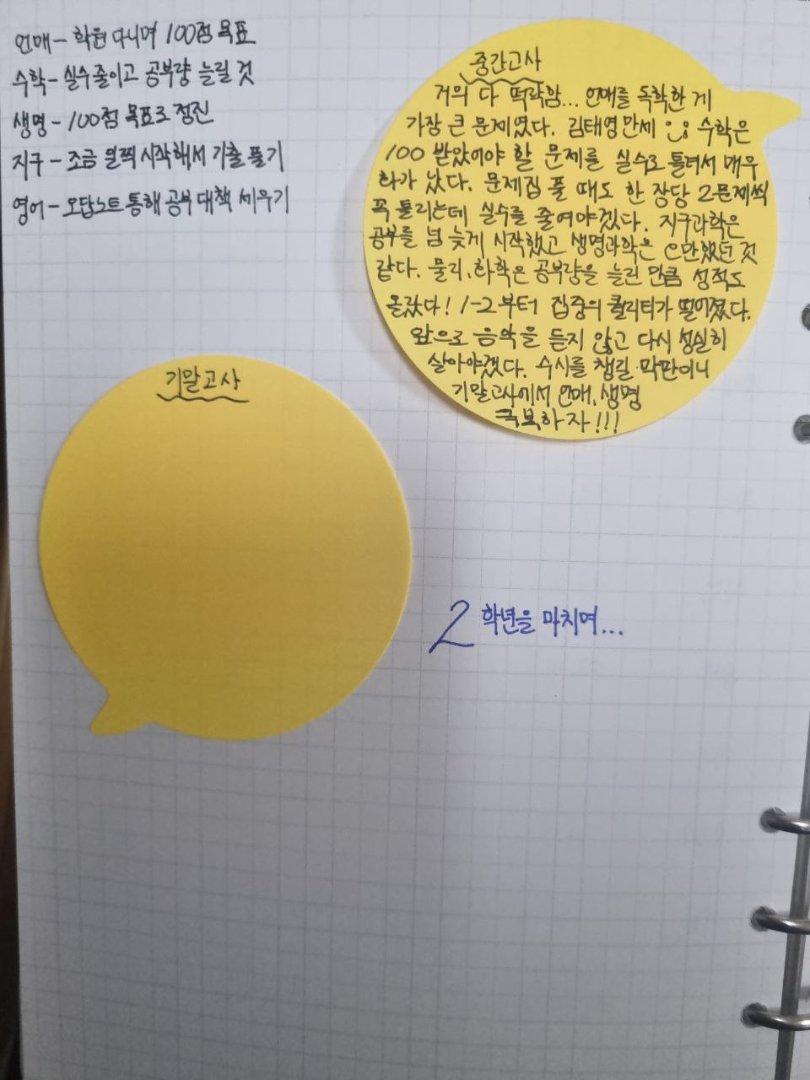 언매 - 학원 다니며 100점 목표
수학 - 실수 줄이고 공부량 늘릴 것
생명 - 100점 목표로 정진
지구 - 조금 일찍 시작해서 기출 풀기
영어 - 오답노트 통해 공부 대책 세우기
중간고사
거의 다 떡락함... 언매를 독학한 게
가장 큰 문제였다. 김태영만세 수학은
100 받았어야 할 문제를 실수로 틀려서 매우
화가 났다. 문제집 풀 때도 한 장당 2문제씩
꼭 틀리는데 실수를 줄여야겠다. 지구과학은
공부를 넘 늦게 시작했고 생명과학은 오만했던 것
같다. 물리, 화학은 공부량을 늘린 만큼 성적도
올랐다! 1-2부터 집중의 퀄리티가 떨어졌다.
앞으로 음악을 듣지 않고 다시 성실히
살아야겠다. 수시를 챙길 막판이니
기말고사에서 언매, 생명
극복하자!!!
기말고사
2학년을 마치며...